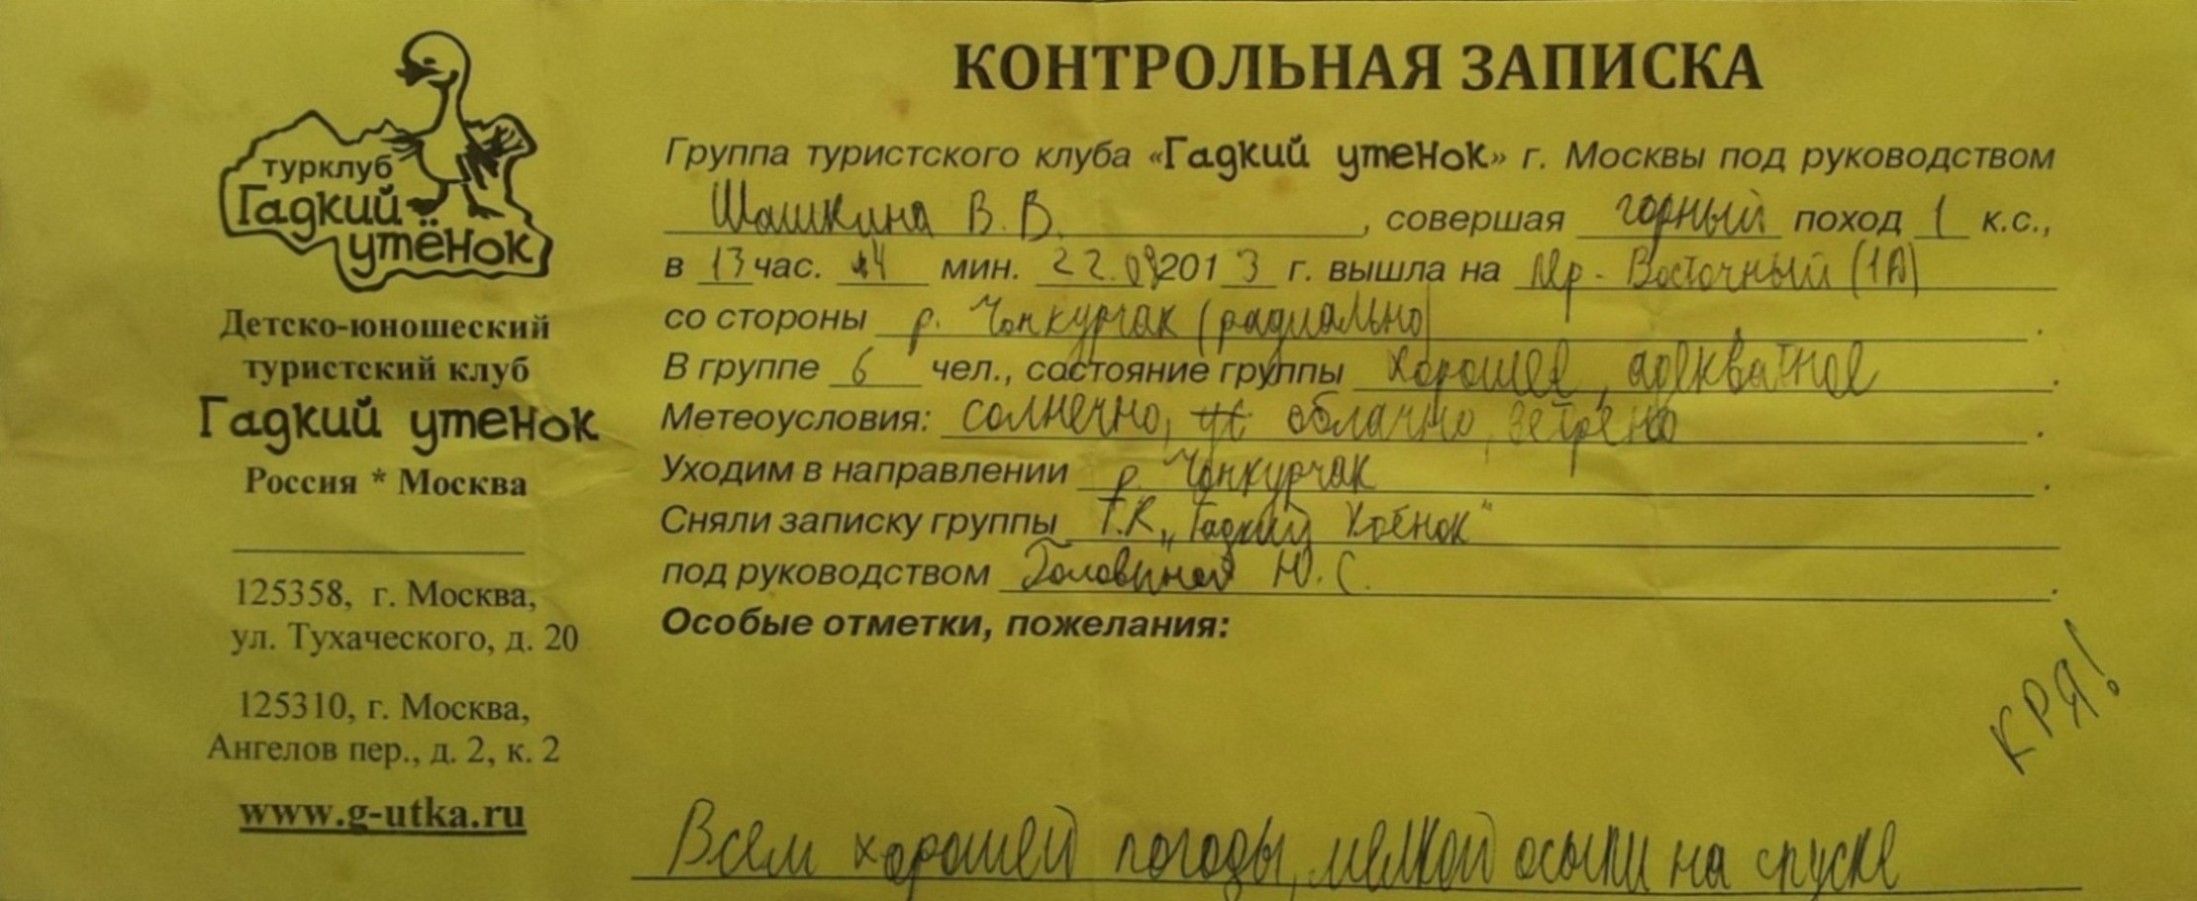 турклуб
Гадкий
утёнок
Детско-юношеский
туристский клуб
Гадкий утенок
Россия * Москва
125358, г. Москва,
ул. Тухачевского, д. 20
125310, г. Москва,
Ангелов пер., д. 2, к. 2
www.g-utka.ru
КОНТРОЛЬНАЯ ЗАПИСКА
Группа туристского клуба «Гадкий утенок» г. Москвы под руководством
Шашкина В. В. , совершая горный поход 1 к.с.,
в 13 час. 44 мин. 22.09 2013 г. вышла на пер. Восточный (1А)
со стороны р. Чонкурчак (радиально) .
В группе 6 чел., состояние группы хорошее, адекватное .
Метеоусловия: солнечно, облачно, ветрено .
Уходим в направлении р. Чонкурчак .
Сняли записку группы Т.К. „Гадкий Котёнок"
под руководством Головиной Ю. С. .
Особые отметки, пожелания:
КРЯ!
Всем хорошей погоды, мелкой осыпи на спуске